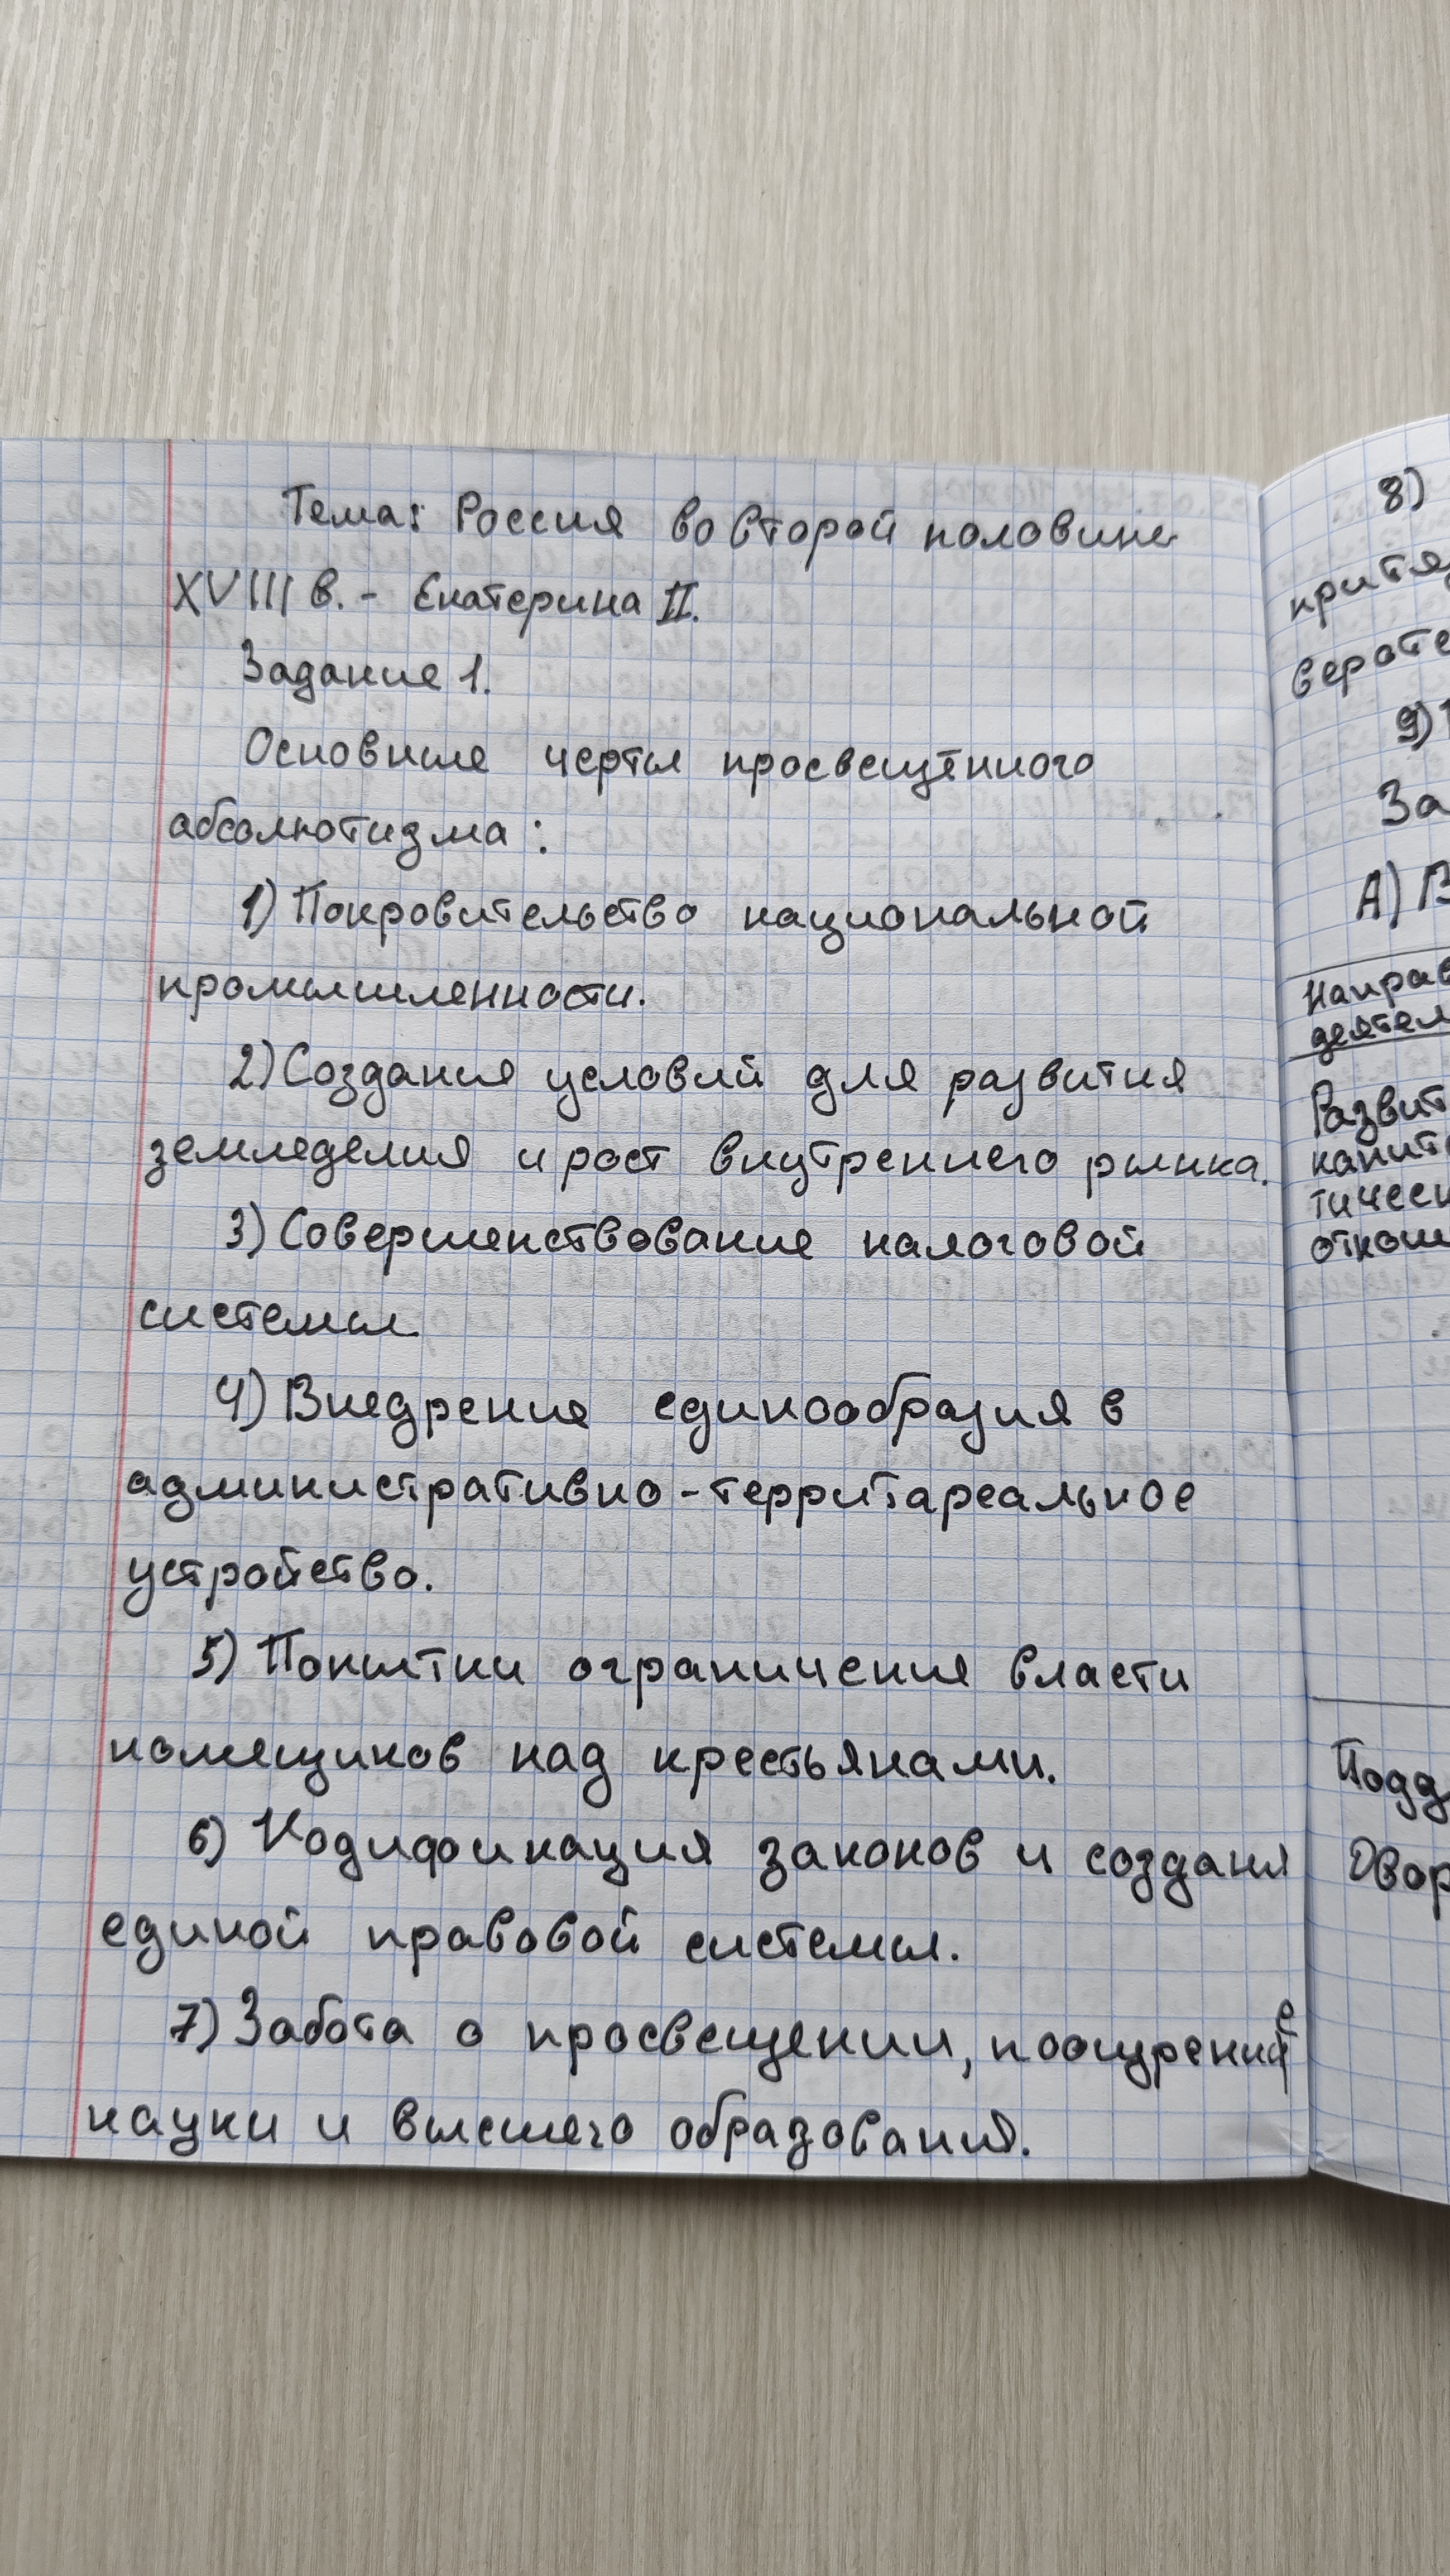 Тема: Россия во второй половине
XVIII в. - Екатерина II.
Задание 1.
Основные черты просвещённого
абсолютизма:
1) Покровительство национальной
промышленности.
2) Создания условий для развития
земледелия и рост внутреннего рынка.
3) Совершенствование налоговой
системы.
4) Внедрение единообразия в
административно-территареальное
устройство.
5) Попытки ограничения власти
помещиков над крестьянами.
6) Кодификация законов и создания
единой правовой системы.
7) Забота о просвещении, поощрение
науки и высшего образования.
8)
притя
верате
9)
За
А) В
Направ
деятел
Развит
капит
тическ
отнош
Подд
Двор